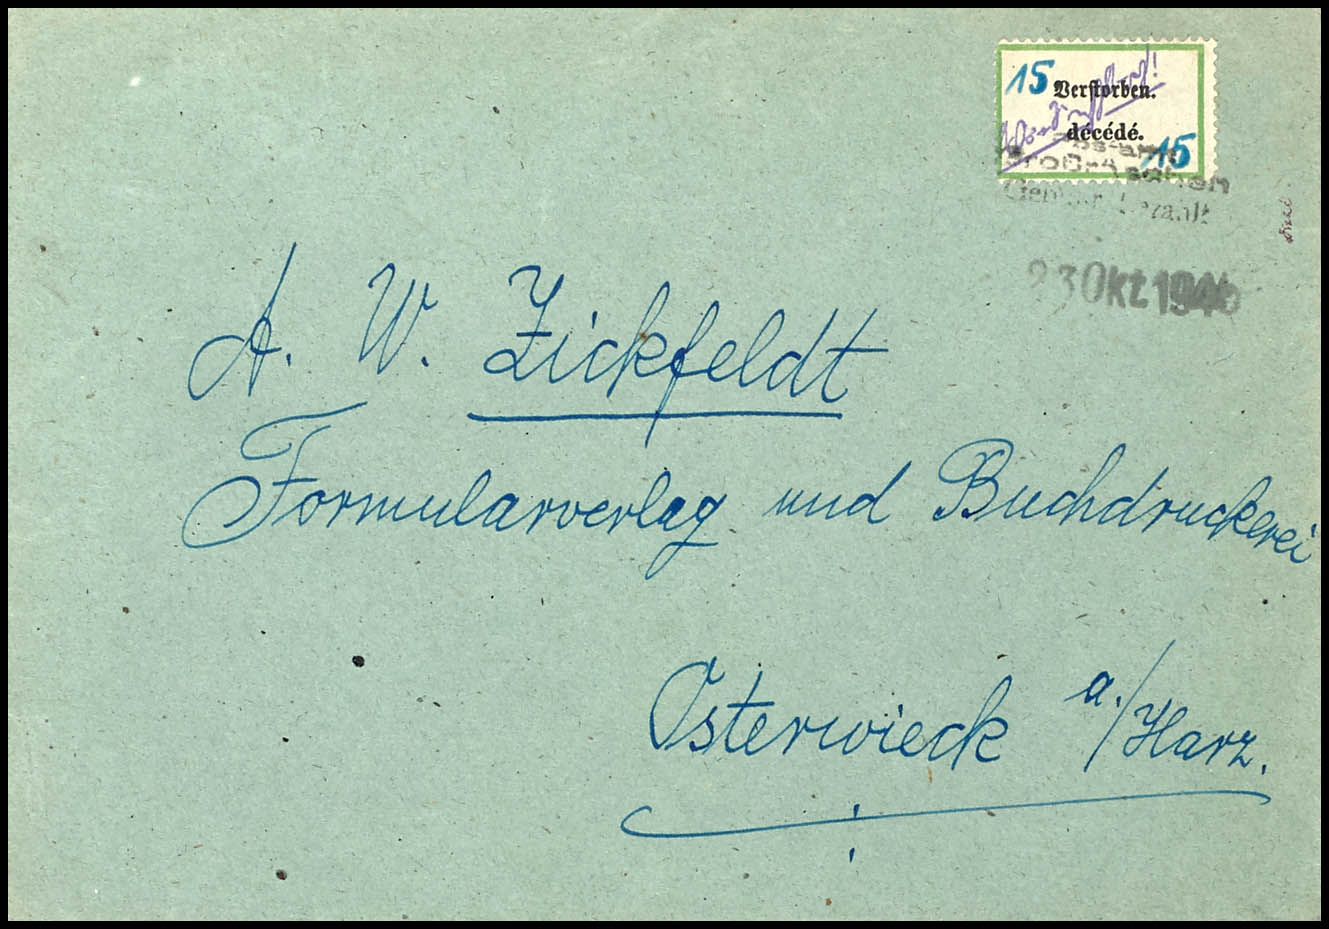 15
Verstorben.
décédé.
15
Gebühr bezahlt
23 Okt 1946
A. W. Zickfeldt
Formularverlag und Buchdruckerei
Osterwieck a./Harz.